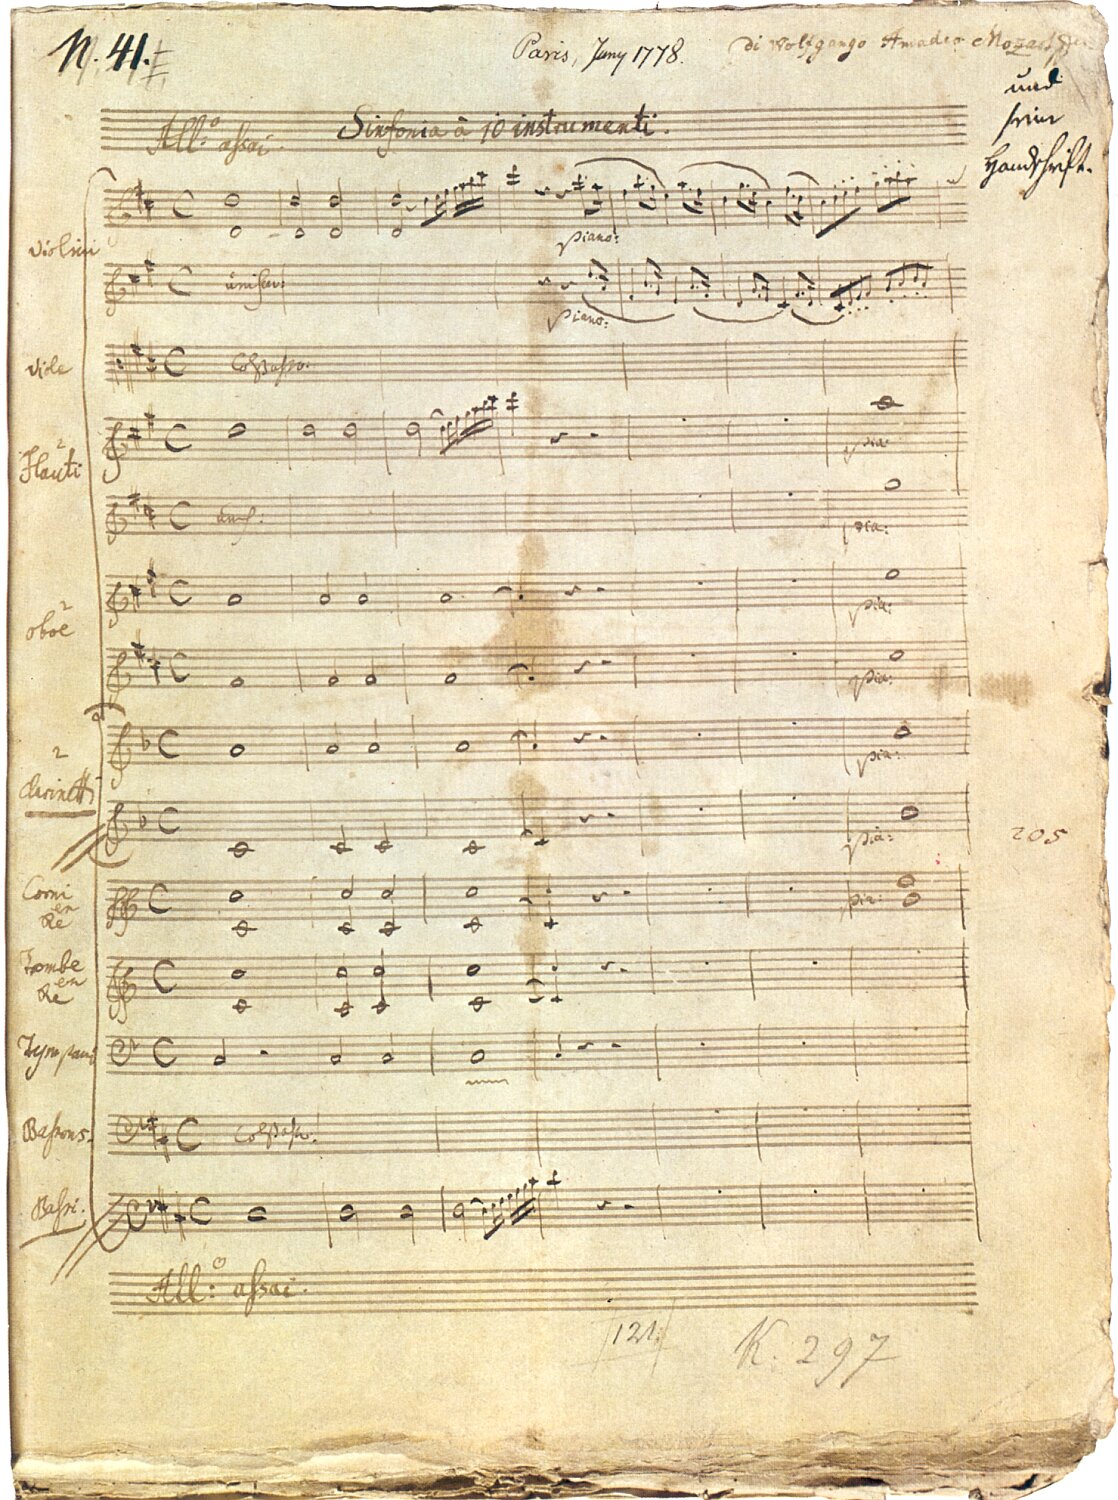 N. 41.
Paris, Juny 1778.
Di Wolfgango Amadeo Mozart
und
seine
Handschrift.
All:o assai.
Sinfonia à 10 instrumenti.
violini
piano:
unisoni
piano:
viole
Col Basso.
2
Flauti
pia:
unis:
pia:
2
oboe
pia:
pia:
2
clarinetti
pia:
pia:
205
Corni
en
Re
pia:
Trombe
en
Re
Tympani
Bassons.
Col Basso.
Bassi.
All:o assai.
121.
K. 297